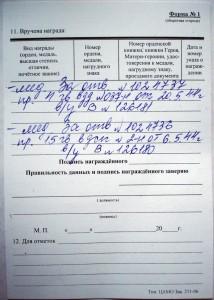 Форма № 1
(оборотная сторона)
11. Вручена награда:
Вид награды (орден, медаль, высшая степень отличия, почётное звание)
Номер ордена, медали, нагрудного знака
Номер орденской книжки, книжки Героя, Матери-героини, удостоверения к медали, нагрудному знаку, проездного документа
Дата и номер указа о награждении
– мед За отв № 1024737
пр 4 гв вдд № 037/н от 20.5.44г
в/у В № 126181
– мед За отв № 1024736
пр 15 гв вдсп № 21 от 6.5.44г
в/у В № 126180
Подпись награждённого
Правильность данных и подпись награждённого заверяю
(должность)
(подпись)
М. П. « » 20 г.
12. Для отметок
Тип. ЦАМО Зак. 231-06